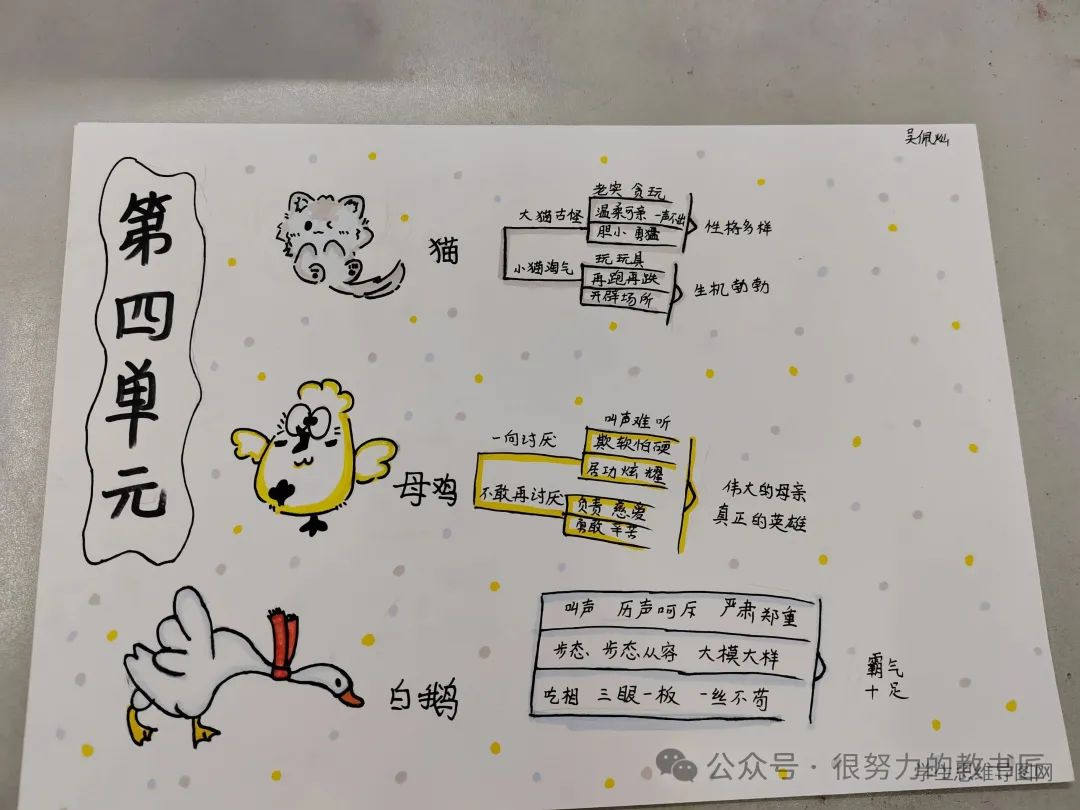 吴佩灿
第四单元
猫
大猫古怪
老实 贪玩
温柔可亲 一声不出
胆小 勇猛
性格多样
小猫淘气
玩玩具
再跑再跌
开辟场所
生机勃勃
母鸡
一向讨厌
叫声难听
欺软怕硬
居功炫耀
不敢再讨厌
负责 慈爱
勇敢 辛苦
伟大的母亲
真正的英雄
白鹅
叫声 历声呵斥 严肃郑重
步态 步态从容 大模大样
吃相 三眼一板 一丝不苟
霸气
十足
公众号·很努力的教书匠
学生思维导图网